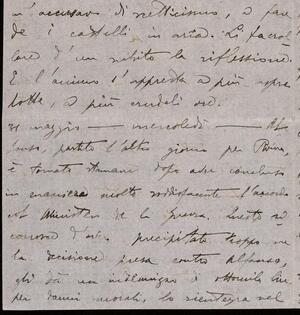 m'accusavo di scetticismo, a fare
de' castelli in aria. Lo facol
di un subito la riflessione.
E l'animo s'appresta a più aspre
lotte, a più crudeli ore.
31 maggio — mercoledì — Al
fonso, partito l'altro giorno per Roma,
è tornato stamane dopo aver concluso
in maniera molto soddisfacente l'accordo
col Ministero de la guerra. Questo ri
conosce d'aver precipitato troppo ne
la decisione presa contro Alfonso,
gli dà un indennizzo di ottomila lire
per danni morali, lo reintegra nel